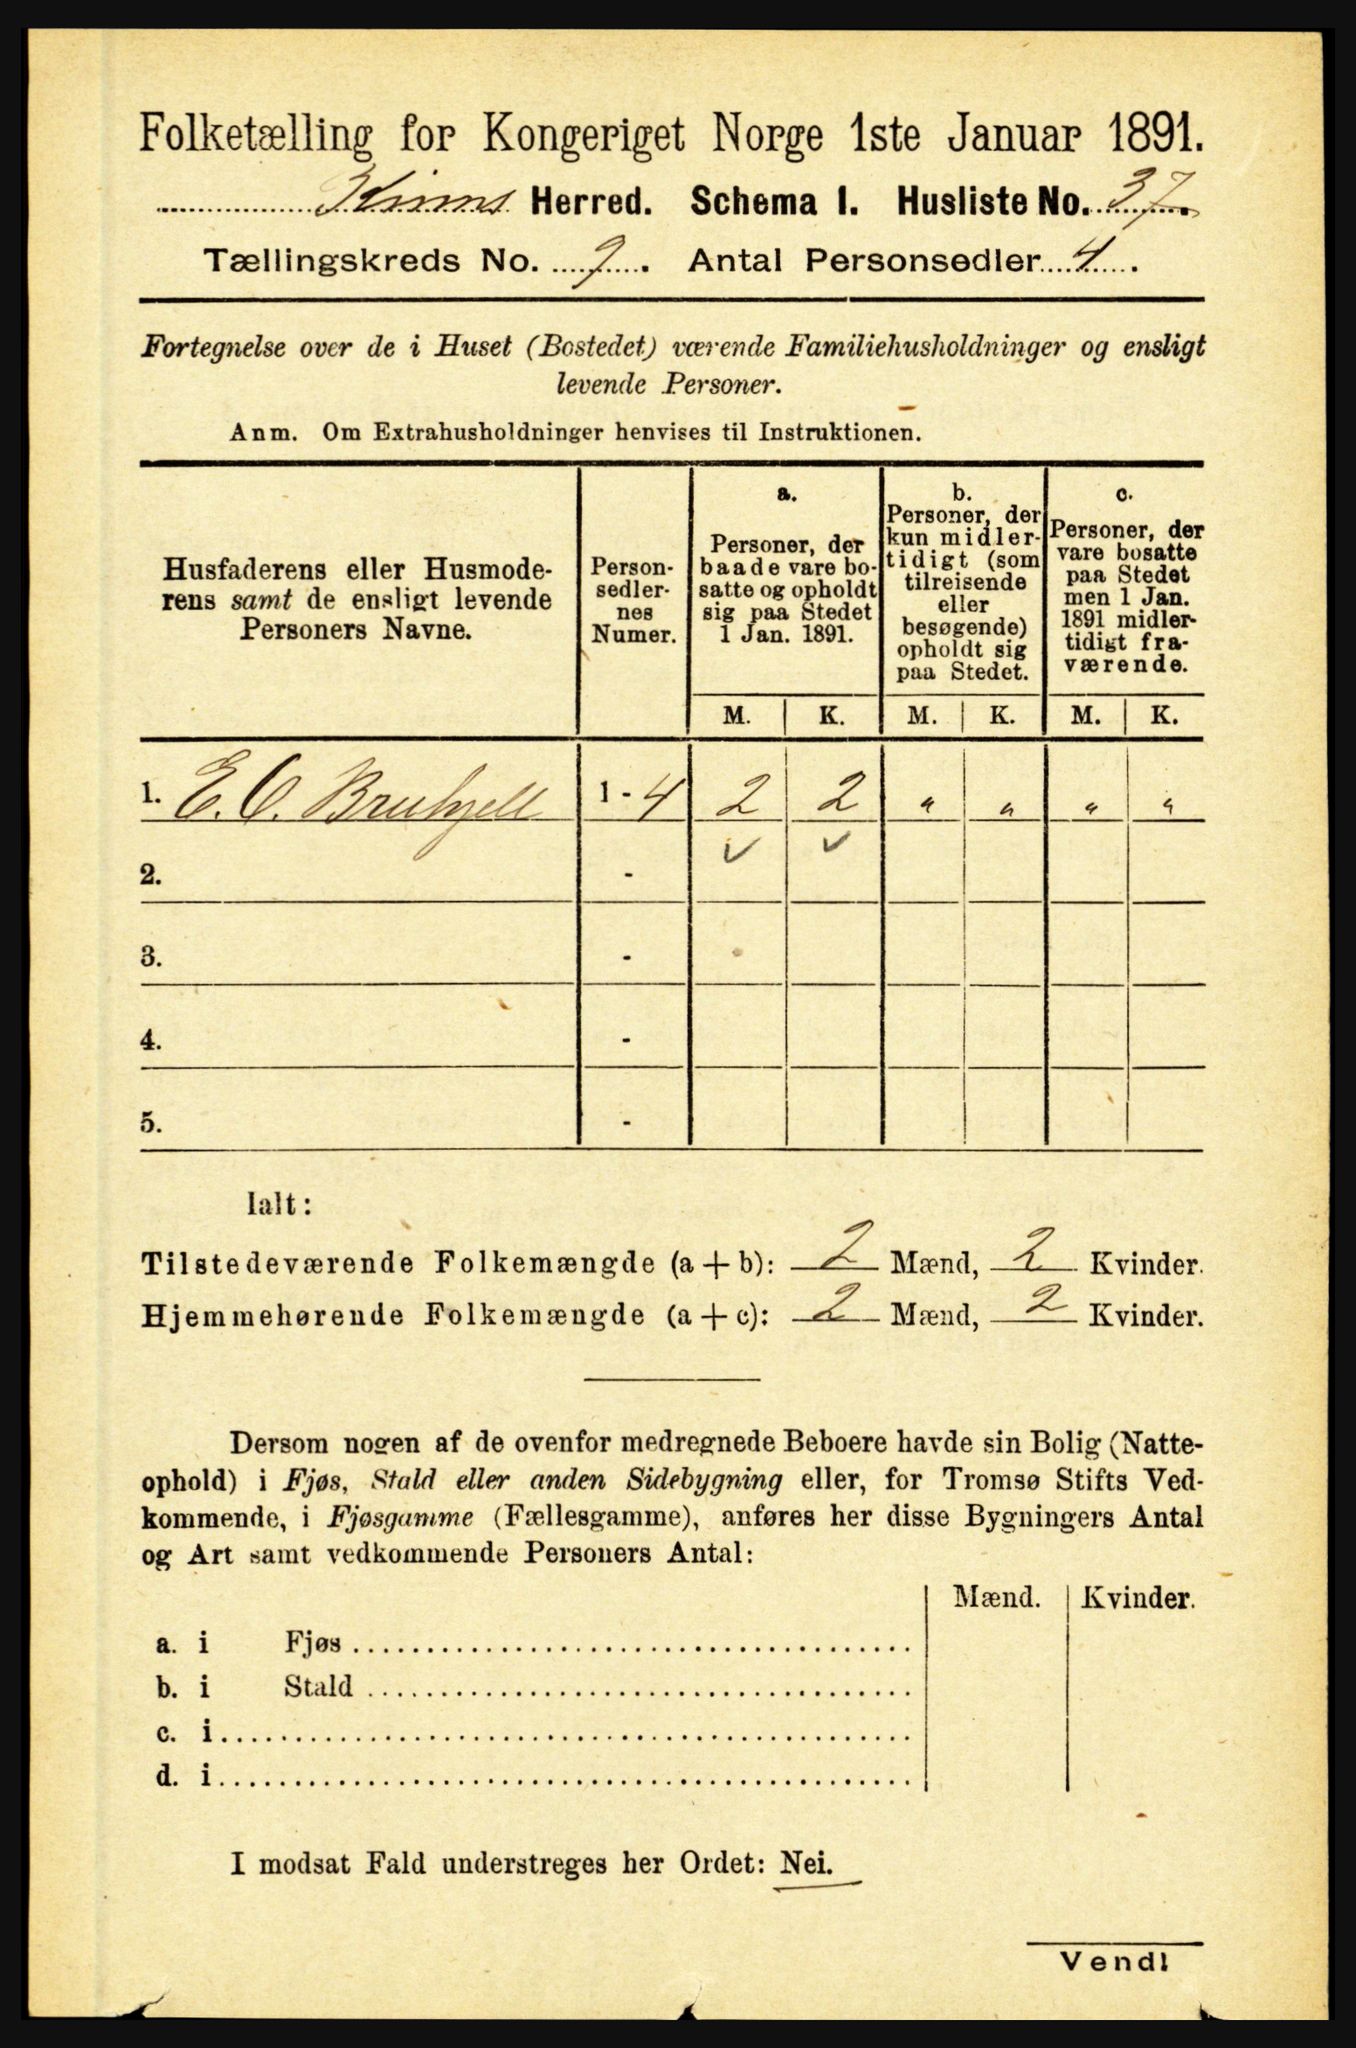 Folketælling for Kongeriget Norge 1ste Januar 1891.
Kinns Herred. Schema I. Husliste No. 37.
Tællingskreds No. 9. Antal Personsedler 4.
Fortegnelse over de i Huset (Bostedet) værende Familiehusholdninger og ensligt
levende Personer.
Anm. Om Extrahusholdninger henvises til Instruktionen.
Husfaderens eller Husmode-
rens samt de ensligt levende
Personers Navne.
Person-
sedler-
nes
Numer.
a.
Personer, der
baade vare bo-
satte og opholdt
sig paa Stedet
1 Jan. 1891.
b.
Personer, der
kun midler-
tidigt (som
tilreisende
eller
besøgende)
opholdt sig
paa Stedet.
c.
Personer, der
vare bosatte
paa Stedet
men 1 Jan.
1891 midler-
tidigt fra-
værende.
M. K. M. K. M. K.
1. E. C. Bruhjell 1 - 4 2 2 „ „ „ „
2. -
3. -
4. -
5. -
Ialt:
Tilstedeværende Folkemængde (a + b): 2 Mænd, 2 Kvinder.
Hjemmehørende Folkemængde (a + c): 2 Mænd, 2 Kvinder.
Dersom nogen af de ovenfor medregnede Beboere havde sin Bolig (Natte-
ophold) i Fjøs, Stald eller anden Sidebygning eller, for Tromsø Stifts Ved-
kommende, i Fjøsgamme (Fællesgamme), anføres her disse Bygningers Antal
og Art samt vedkommende Personers Antal:
Mænd. Kvinder.
a. i Fjøs
b. i Stald
c. i
d. i
I modsat Fald understreges her Ordet: Nei.
Vend!